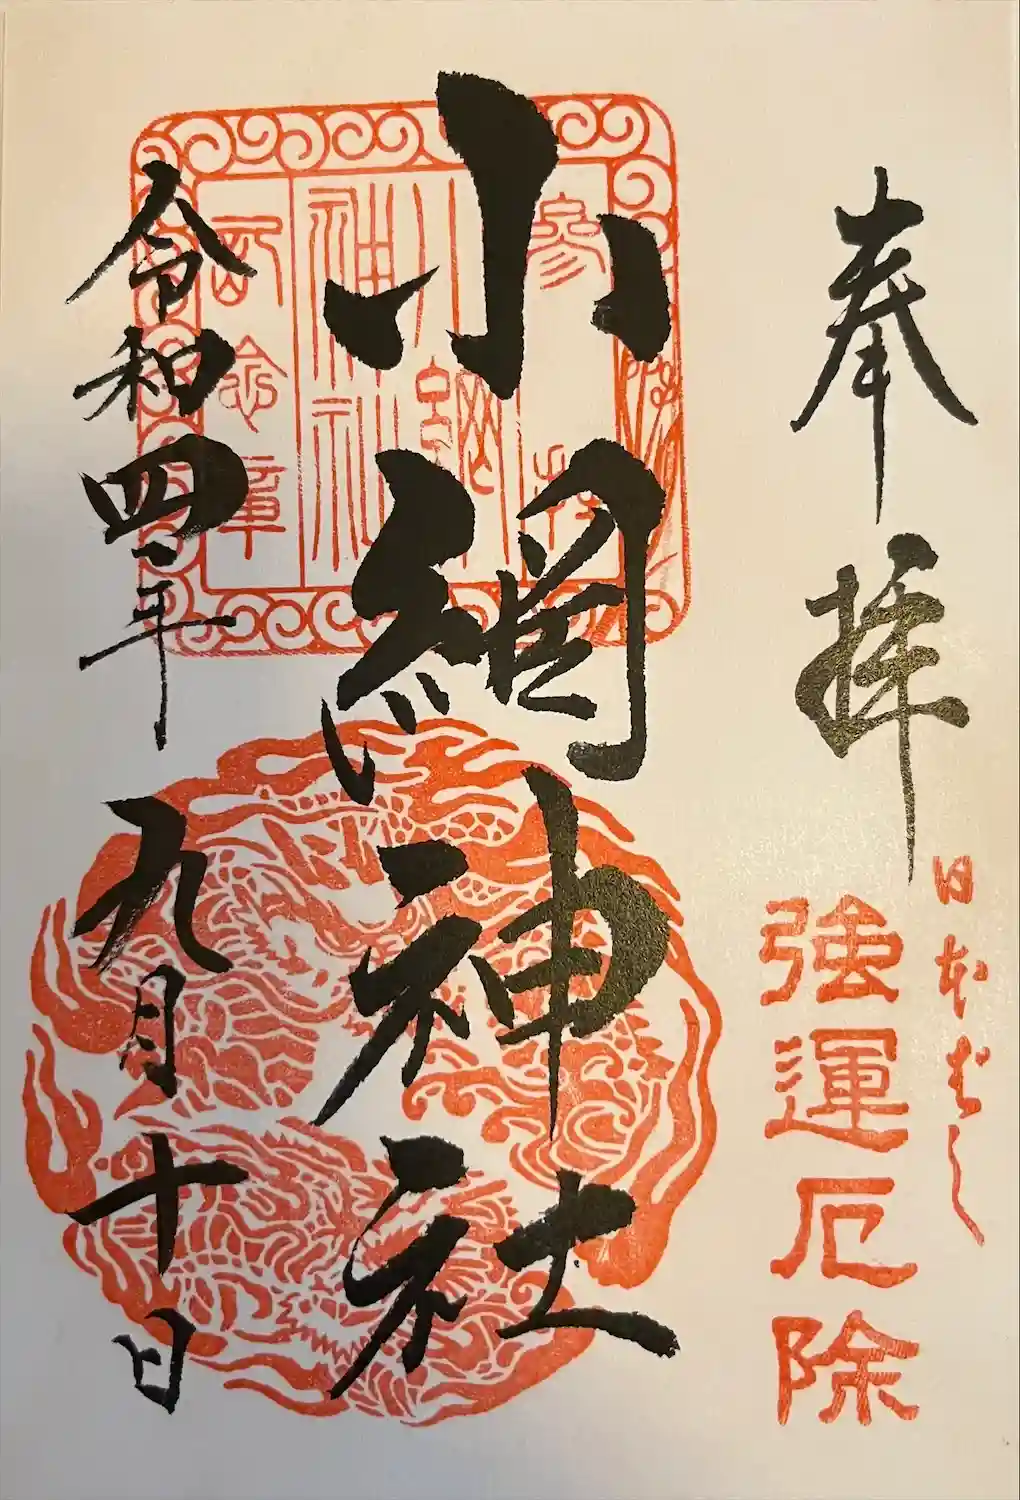 奉拝
日本ばし
強運厄除
小網神社
参拝
小網
神社
記念章
令和四年
九月十日